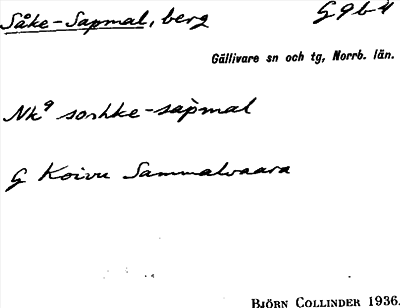 Såke-Sapmal, berg G 9 b 4
Gällivare sn och tg, Norrb. län.
Nk⁹ soshke-sàpmal
G Koivu Sammalvaara
BJÖRN COLLINDER 1936.